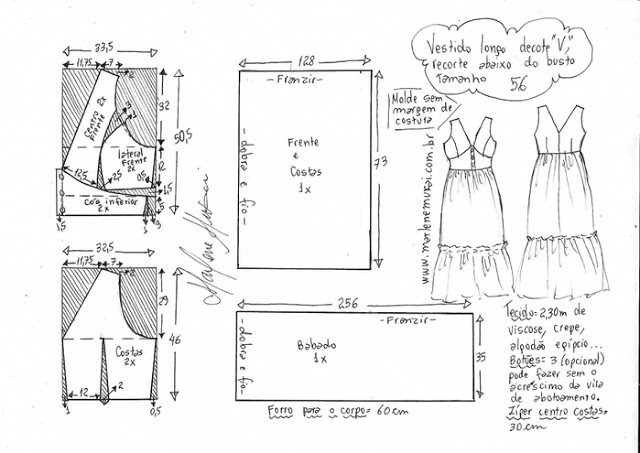 Vestido longo decote "V",
recorte abaixo do busto
Tamanho 56
Molde sem
margem de
costura
www.marlenemukai.com.br
33,5
11,75
7
2
32
50,5
3
1
Centro 2x
Frente
lateral
Frente
2x
12
12,5
2,5
0,5
1,5
5
Cós inferior
2x
1,5
1
9
32,5
11,75
7
2
29
46
Costas
2x
12
2
1
0,5
128
-Franzir-
Frente
e
Costas
1x
- dobra e fio-
73
256
-Franzir-
Babado
1x
-dobra e fio-
35
Forro para o corpo= 60cm
Tecido= 2,30m de
viscose, crepe,
algodão egípcio...
Botões= 3 (opcional)
pode fazer sem o
acréscimo da vila
de abotoamento.
Zíper centro costas=
30cm